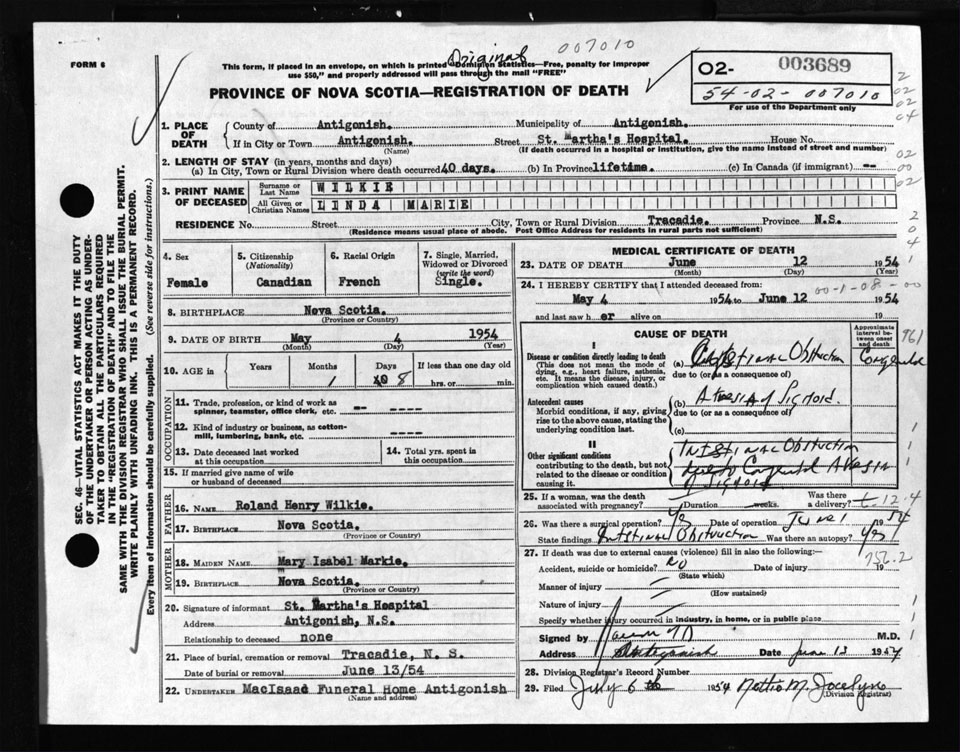 007010
Original
FORM 6
This form, if placed in an envelope, on which is printed "Dominion Statistics—Free, penalty for improper
use $50," and properly addressed will pass through the mail "FREE"
PROVINCE OF NOVA SCOTIA—REGISTRATION OF DEATH
O2- 003689
54-02-007010
For use of the Department only
1. PLACE OF DEATH
County of Antigonish. Municipality of Antigonish.
If in City or Town Antigonish. Street St. Martha's Hospital. House No.
(Name) (If death occurred in a hospital or institution, give the name instead of street and number)
2. LENGTH OF STAY (in years, months and days)
(a) In City, Town or Rural Division where death occurred 40 days. (b) In Province lifetime. (c) In Canada (if immigrant) --
3. PRINT NAME OF DECEASED
Surname or Last Name WILKIE
All Given or Christian Names LINDA MARIE
RESIDENCE No. Street City, Town or Rural Division Tracadie. Province N.S.
(Residence means usual place of abode. Post Office Address for residents in rural parts not sufficient)
SEC. 46—VITAL STATISTICS ACT MAKES IT THE DUTY
OF THE UNDERTAKER OR PERSON ACTING AS UNDER-
TAKER TO OBTAIN ALL THE PARTICULARS REQUIRED
IN THE "REGISTRATION OF DEATH" AND TO FILE THE
SAME WITH THE DIVISION REGISTRAR WHO SHALL ISSUE THE BURIAL PERMIT.
WRITE PLAINLY WITH UNFADING INK. THIS IS A PERMANENT RECORD.
Every item of information should be carefully supplied. (See reverse side for instructions.)
4. Sex
Female
5. Citizenship
(Nationality)
Canadian
6. Racial Origin
French
7. Single, Married,
Widowed or Divorced
(write the word)
Single.
8. BIRTHPLACE Nova Scotia.
(Province or Country)
9. DATE OF BIRTH May 4 1954
(Month) (Day) (Year)
10. AGE in
Years Months Days If less than one day old
1 8 hrs. or min.
OCCUPATION
11. Trade, profession, or kind of work as
spinner, teamster, office clerk, etc. -- ----
12. Kind of industry or business, as cotton-
mill, lumbering, bank, etc. ----
13. Date deceased last worked
at this occupation
14. Total yrs. spent in
this occupation
15. If married give name of wife
or husband of deceased
FATHER
16. Name Roland Henry Wilkie.
17. Birthplace Nova Scotia.
(Province or Country)
MOTHER
18. Maiden Name Mary Isabel Markie.
19. Birthplace Nova Scotia.
(Province or Country)
20. Signature of informant St. Martha's Hospital
Address Antigonish, N.S.
Relationship to deceased none
21. Place of burial, cremation or removal Tracadie, N. S.
Date of burial or removal June 13/54
22. Undertaker MacIsaac Funeral Home Antigonish
(Name and address)
MEDICAL CERTIFICATE OF DEATH
23. DATE OF DEATH June 12 1954
(Month) (Day) (Year)
24. I HEREBY CERTIFY that I attended deceased from:
00-1-08-00
May 4 1954 to June 12 1954
and last saw h er alive on 19
CAUSE OF DEATH
Approximate
interval be-
tween onset
and death
I
Disease or condition directly leading to death
(This does not mean the mode of
dying, e.g., heart failure, asthenia,
etc. It means the disease, injury, or
complication which caused death.)
(a) Intestinal Obstruction Congenital
due to (or as a consequence of)
Antecedent causes
Morbid conditions, if any, giving
rise to the above cause, stating the
underlying condition last.
(b) Atresia of Sigmoid.
due to (or as a consequence of)
(c)
II
Other significant conditions
contributing to the death, but not
related to the disease or condition
causing it.
Intestinal Obstruction
due to Congenital Atresia
of Sigmoid
25. If a woman, was the death
associated with pregnancy? Duration weeks. Was there
a delivery?
26. Was there a surgical operation? Yes Date of operation June 1 1954
State findings Intestinal Obstruction Was there an autopsy? Yes
27. If death was due to external causes (violence) fill in also the following:—
756.2
Accident, suicide or homicide? No Date of injury 19
(State which)
Manner of injury
(How sustained)
Nature of injury
Specify whether injury occurred in industry, in home, or in public place
Signed by M.D.
Address Antigonish Date June 13 1954
28. Division Registrar's Record Number
29. Filed July 6 1954 Nettie M. Jocelyn
(Division Registrar)